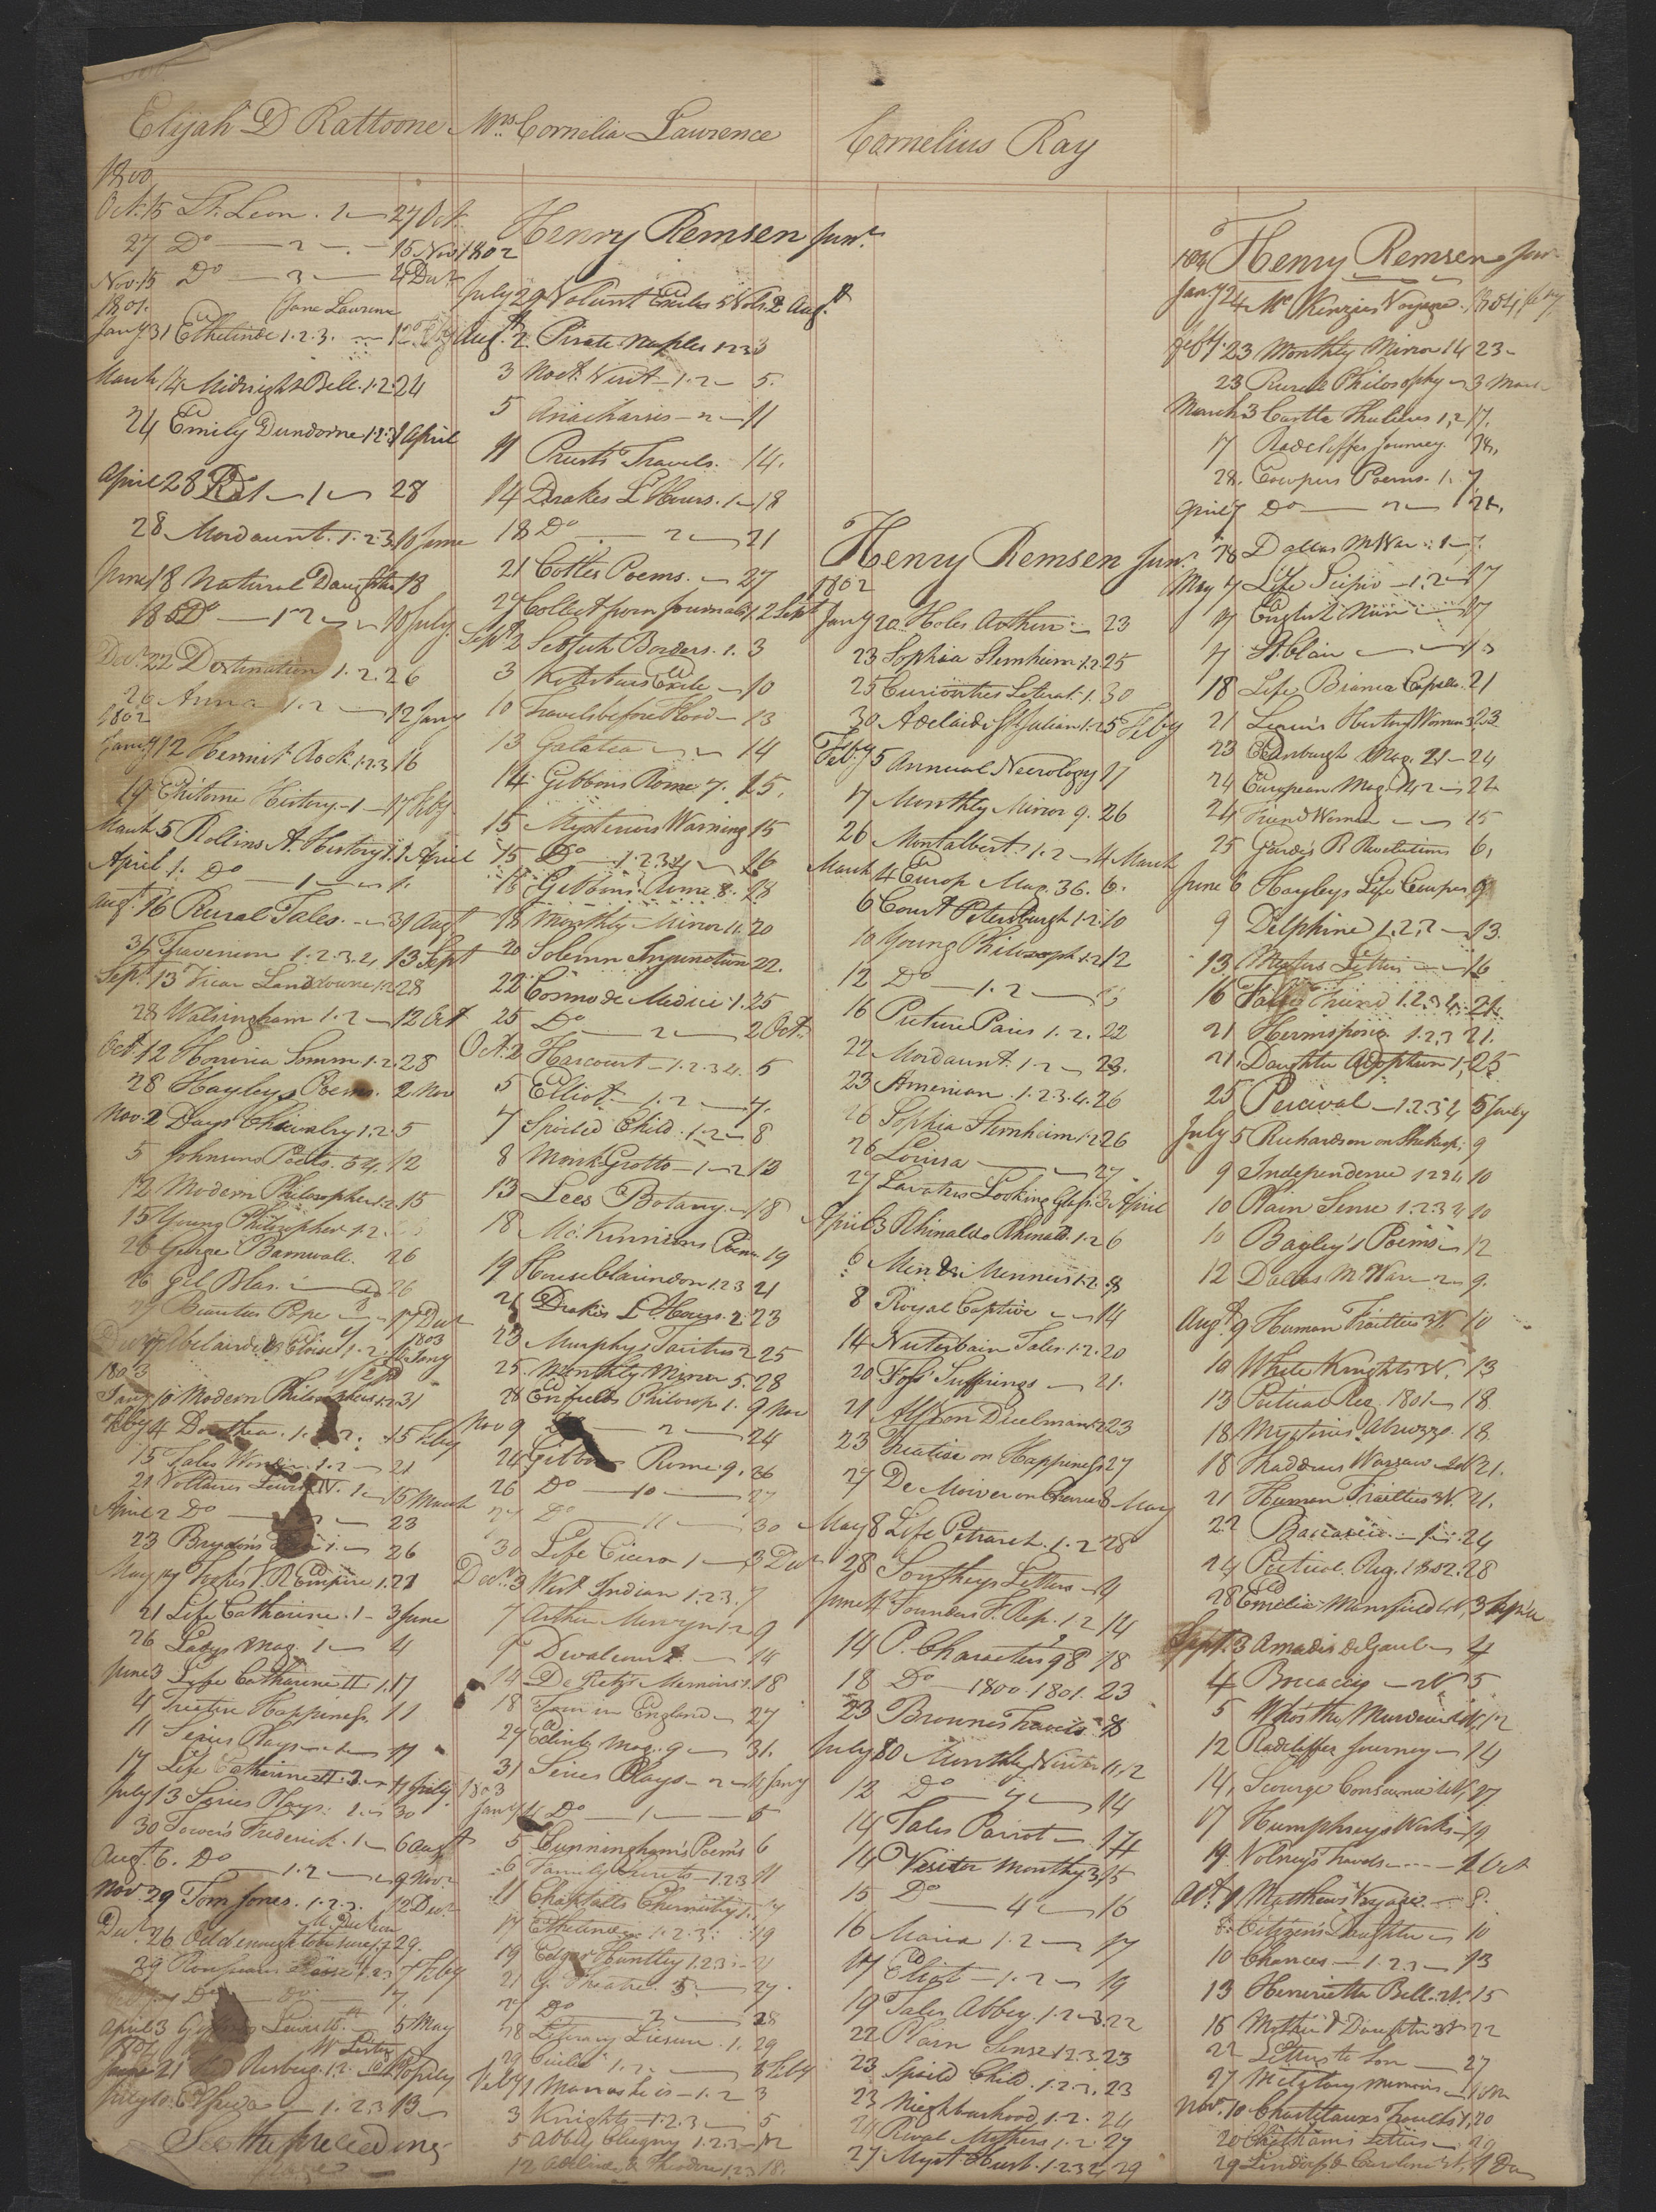 Elijah D Rattoone
1800
Oct. 15 St. Leon. 1 — 27 Oct
27 Do — 2 — 15 Nov
Nov. 15 Do — 3 — 4 Decr
1801. Jane Laurence
Jany 31 Ethelinde 1.2.3. — 12
March 14 Midnight Bell. 1.2. 24
24 Emily Dundorne 1.2.3 1 April
April 28 Do 1 — 1 — 28
28 Mordaunt. 1.2.3. 10 June
June 18 Natural Daughter 18
18 Do — 1 2 — 10 July
Decr. 22 Destination 1.2. 26
26 Anna 1.2 — 12 Jany
1802
Jany 12 Hermit Rock 1.2.3 16
19 History — 1 — 17 Feby
March 5 Rollins A. History 1. 1 April
April 1. Do — 1 —
Augt. 16 Rural Tales. — 31 Augt
31 Travenion 1.2.3.4 13 Sept
Sept. 13 Vicar Landsdowne 1.2 28
28 Walsingham 1.2 — 12 Oct
Oct. 12 Horrina Somm 1.2. 28
28 Hayleys Poems. 2 Nov
Nov. 2 Days Chivalry 1.2. 5
5 Johnsons Poets. 54. 12
12 Modern Philosopher 1.2. 15
15 Young Philosopher 1.2.
26 George Barnwall. 26
26 Gil Blas. — 26
27 Beauties Pope — 17 Decr
Decr 17 Abelaird & Eloisa 1.2. 10 Jany 1803
1803
Jany 10 Modern Philosophers 1.2. 31
Feby 4 Dorothea. 1.2. 15 Feby
15 Tales Wonder. 1.2 — 21
21 Voltaires Lewis XIV. 1 — 15 March
April 2 Do — 23
23 Brydon's 1. — 26
May 17 Tookes V. R Empire 1. 21
21 Life Catharine. 1 — 3 June
26 Ladys Mag. 1 — 4
June 3 Life Catharine II 1. 17
4 Treatise Happiness. 11
11 Series Plays — 17
17 Life Catharine II. 2 — 11 July
July 13 Series Plays. 1 — 30
30 Towers Frederick. 1 — 6 Augt
Augt. 6. Do — 1.2 — 9 Nov.
Nov 29 Tom Jones. 1.2.3. 12 Decr
Decr. 26 Old enough 29.
29 1.2.3 7 Feby
Do Do 7
April 3 Lewis 5 May
1804
June 21 1.2. 10 July
July 10. 1.2.3 13 —
See the preceding
page —
Mrs. Cornelia Laurence
Henry Remsen Junr.
1802
July 29 Volunt Exiles 5 Vols. 2 Augt.
Aug. 2 Pirate Naples 1 2 3 3
3 Noct. Visit — 1.2 — 5.
5 Anacharsis — 2 — 11
11 Prusts Travels. 14.
14 Drakes L Hours. 1 — 18
18 Do — 2 — 21
21 Cottles Poems. — 27
27 Collect from Journals 1. 2 Sept
Sept 2 Scottish Borders. 1. 3
3 Kotzebues Exile — 10
10 Travels before Flood — 13
13 Galatea — 14
14 Gibbons Rome 7. 15.
15 Mysterious Warning 15
15 Do — 1.2.3.4 — 16
16 Gibbons. Rome 8. 18
18 Monthly Mirror 11. 20
20 Solemn Injunction 22.
22 Cosmo de Medici 1. 25
25 Do — 2 — 2 Oct.
Oct. 2 Harcourt — 1.2.3.4. 5
5 Elliot — 1.2 — 7.
7 Spoiled Child. 1.2 — 8
8 Monk Grotto — 1 — 2 13
13 Lees Botany — 18
18 Mc. Kinnions Poem. 19
19 House Claurindon 1.2.3 21
21 Drakes L Hours. 2. 23
23 Murphys Tacitus 2. 25
25. Monthly Mirror 5. 28
28 Enfields Philosoph 1. 9 Nov
Nov 9 Do — 2 — 24
24 Gibbons Rome. 9. 26
26 Do — 10 — 27
27 Do — 11 — 30
30 Life Cicero 1 — 3 Decr
Decr. 3 West Indian 1.2.3. 7
7 Arthur Mervyn 1.2. 9
9 Devalcourt — 14
14 De Retz's Memoirs 1. 18
18 Tour in England — 27
27 Edinb Mag. 9 — 31.
31 Series Plays — 2 — 4 Jany
1803
Jany 4 Do — 1 — 5
5. Cunningham's Poems 6
6 Family Secrets — 1.2.3 11
11 Chaptalls Chemistry 1. 17
17 Ethelinde 1.2.3. 19
19 Edgar Huntley 1.2.3 — 21
21 G. Theatre. 3 — 27.
27 Do — 2 — 28
28 Literary Liesure. 1. 29
29 Cecilia 1.2. — 1 Feby
Feby 1 1.2 3
3 Knights — 1.2.3 — 5
5 Abbey Clugny 1.2.3 — 12
12 Adeline & Theodore 1.2.3 18.
Cornelius Ray
Henry Remsen Junr.
1802
Jany 20 Holes Arthur — 23
23 Sophia Sternheim 1.2 25
25 Curiosities Literat. 1. 30
30 Adelaide St Julian 1.2 5 Feby
Feby 5 Annual Necrology 17
17 Monthly Mirror 9. 26
26 Montalbert. 1.2 — 4 March
March 4 Europ Mag. 36. 6.
6 Court Petersburgh 1.2. 10
10 Young Philosoph 1.2 12
12 Do — 1.2 —
16 Picture Paris 1.2. 22
22 Mordaunt. 1.2 — 23.
23 American. 1.2.3.4. 26
26 Sophia Sternheim 1.2 26
26 Louisa — 27
27 Lavaters Looking Glass. 3 April
April 3 Rhinaldo Rhinald. 1.2 6
6 Min & Minneus 1.2. 8
8 Royal Captive — 14
14 Nuterbain Tales. 1.2. 20
20 Foss' Sufferings — 21.
21 Alf Von Diceelman 1.2 23
23 Treatise on Happiness 27
27 De Moiver on Chances 8 May
May 8 Life Petrarch. 1.2 28
28 Southeys Letters — 4
June 4 Founders F. Rep. 1.2 14
14 P. Characters 98 18
18 Do — 1800.1801. 23
23 Brownes Travels.
July 80 Monthly Visitor 1. 12
12 Do — 14
14 Tales Parrot — 14
14 Visitor Monthly 3. 15
15 Do — 4 — 16
16 Maria 1.2 — 17
17 Eliot — 1.2 — 19
19 Tales Abbey. 1.2 — 22
22 Plain Sense 1.2.3. 23
23 Spoild Child. 1.2.3. 23
23 Nieghbourhood 1.2. 24
24 Rival Mothers 1.2. 27
27 Myst. Husb. 1.2.3.4 29
1804 Henry Remsen Junr
Jany 24 Mc Kenzies Voyage.
Feby. 23 Monthly Mirror 14 23 —
23 Rural Philosophy — 3 March
March 3 Castle Thulieus 1,2 17.
17 Radcliffes Journey. 28,
28. Cowpers Poems. 1. 7
April 7 Do — 2 — 28,
28 Dallas M War. 1 —
May 7 Life Scipio — 1.2 — 17
17 English Nun — 17
17 St. Blair —
18 Life Bianca Capello. 21
21 Lewis Hunting Woman 3. 23
23 Edinburgh Mag. 21 — 24
24 European Mag. 42 — 24
24 Friend Women — 25
25 Garde's R Revolutions 6,
June 6 Hayleys Life Cowper 9.
9 Delphine 1.2.3 — 13.
13 Letters — 16
16 Friend 1.2.3.4. 21.
21 Hermsprong. 1.2.3 21.
21. Daughter Adoption 1, 25
25 Percival — 1.2.3.4 5 July
July 5 Richardson on Shakesp. 9
9 Independence 1.2.3.4. 10
10 Plain Sense 1.2.3. 10
10 Bayley's Poems — 12
12 Dallas M War — 2 — 9.
Augt. 9 Human Frailties 3V. 10
10 White Knights 3V. 13
13 Poetical Reg. 1801 — 18
18 Mysterious Abruzzo. 18
18 Thaddeus Warsaw — 21.
21 Human Frailties 3V. 21.
22 24
24 Poetical Reg. 1802. 28
28 Emelia Mansfield 4V. 3 Septr
Sept. 3 Amadis de Gaul — 4
4 Boccacio — 2V. 5
5 Who's the Murderer 4V. 12
12 Radcliffes Journey — 14
14. Scourge Conscience 4V. 17
17 Humphreys Works — 19
19. Volney's Travels — 1 Oct
Oct. 1 Matthews Voyage — 8.
8. Citizen's Daughter — 10
10 Chances — 1.2.3 — 13
13 Henrietta Bell. 2V. 15
15 Mother & Daughter 3V 22
22 Letters to Son — 27
27 Military Memoirs —
Novr. 10 20
20 Chatham's Letters —
29 Lindorf & Caroline 3V, 1 Dec